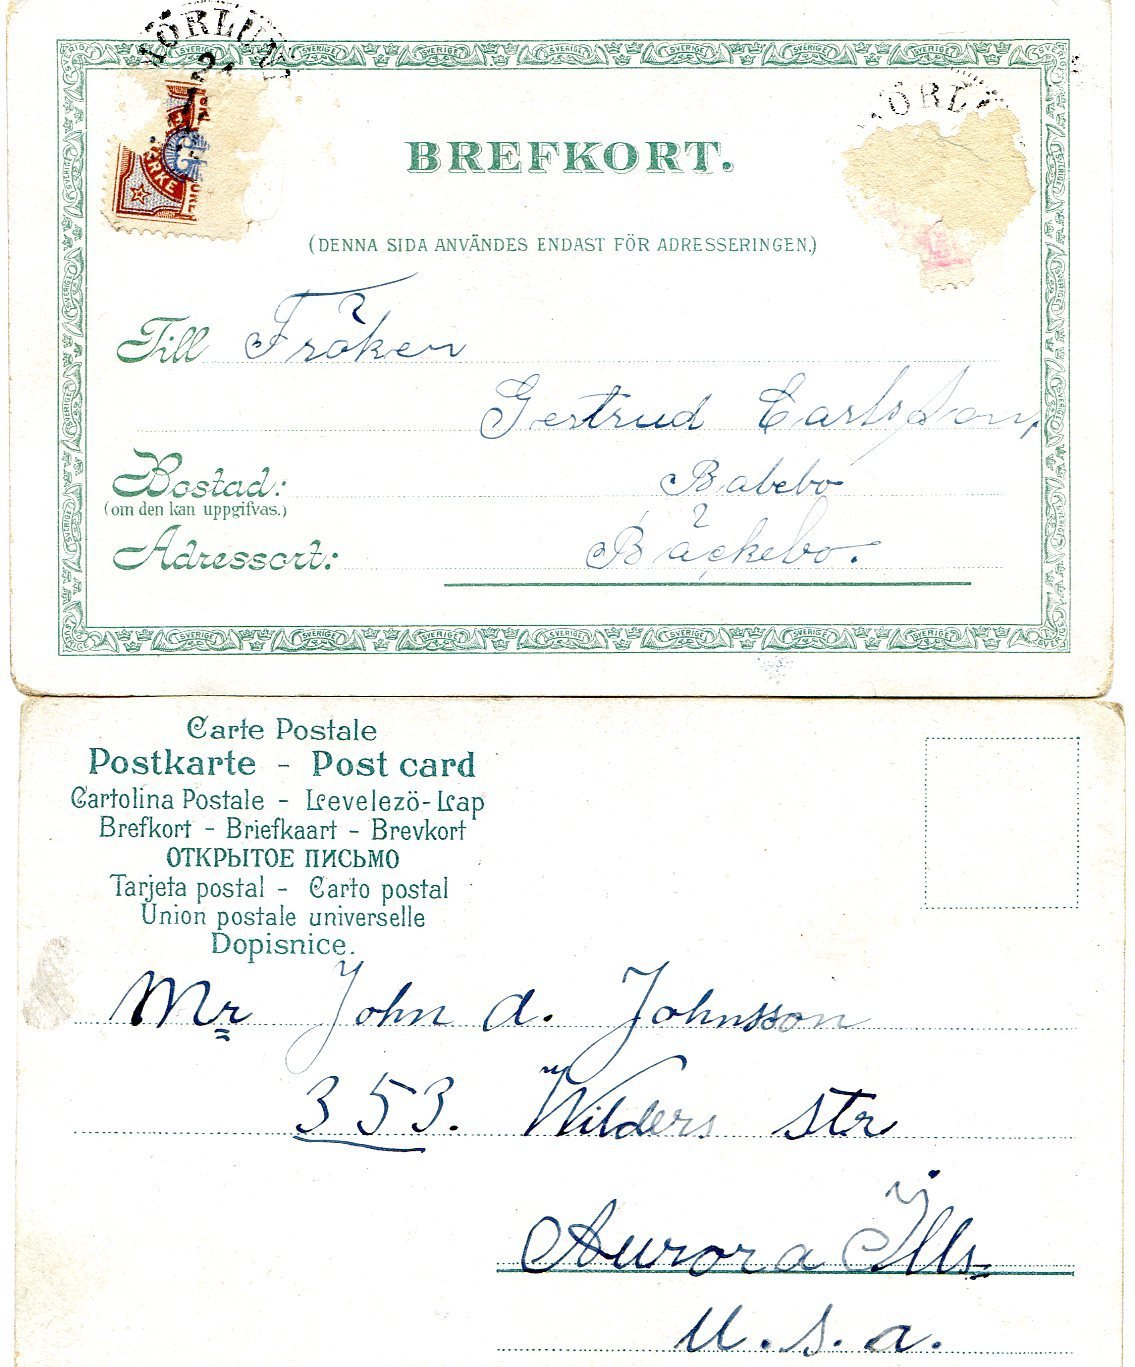 BREFKORT.
(DENNA SIDA ANVÄNDES ENDAST FÖR ADRESSERINGEN.)
Till Fröken
Gertrud Carlsson,
Bostad: Babebo
(om den kan uppgifvas.)
Adressort: Bäckebo.
Carte Postale
Postkarte - Post card
Cartolina Postale - Levelezö-Lap
Brefkort - Briefkaart - Brevkort
ОТКРЫТОЕ ПИСЬМО
Tarjeta postal - Carto postal
Union postale universelle
Dopisnice.
Mr John A. Johnsson
353. Wilders str
Aurora Ills.
U.S.A.